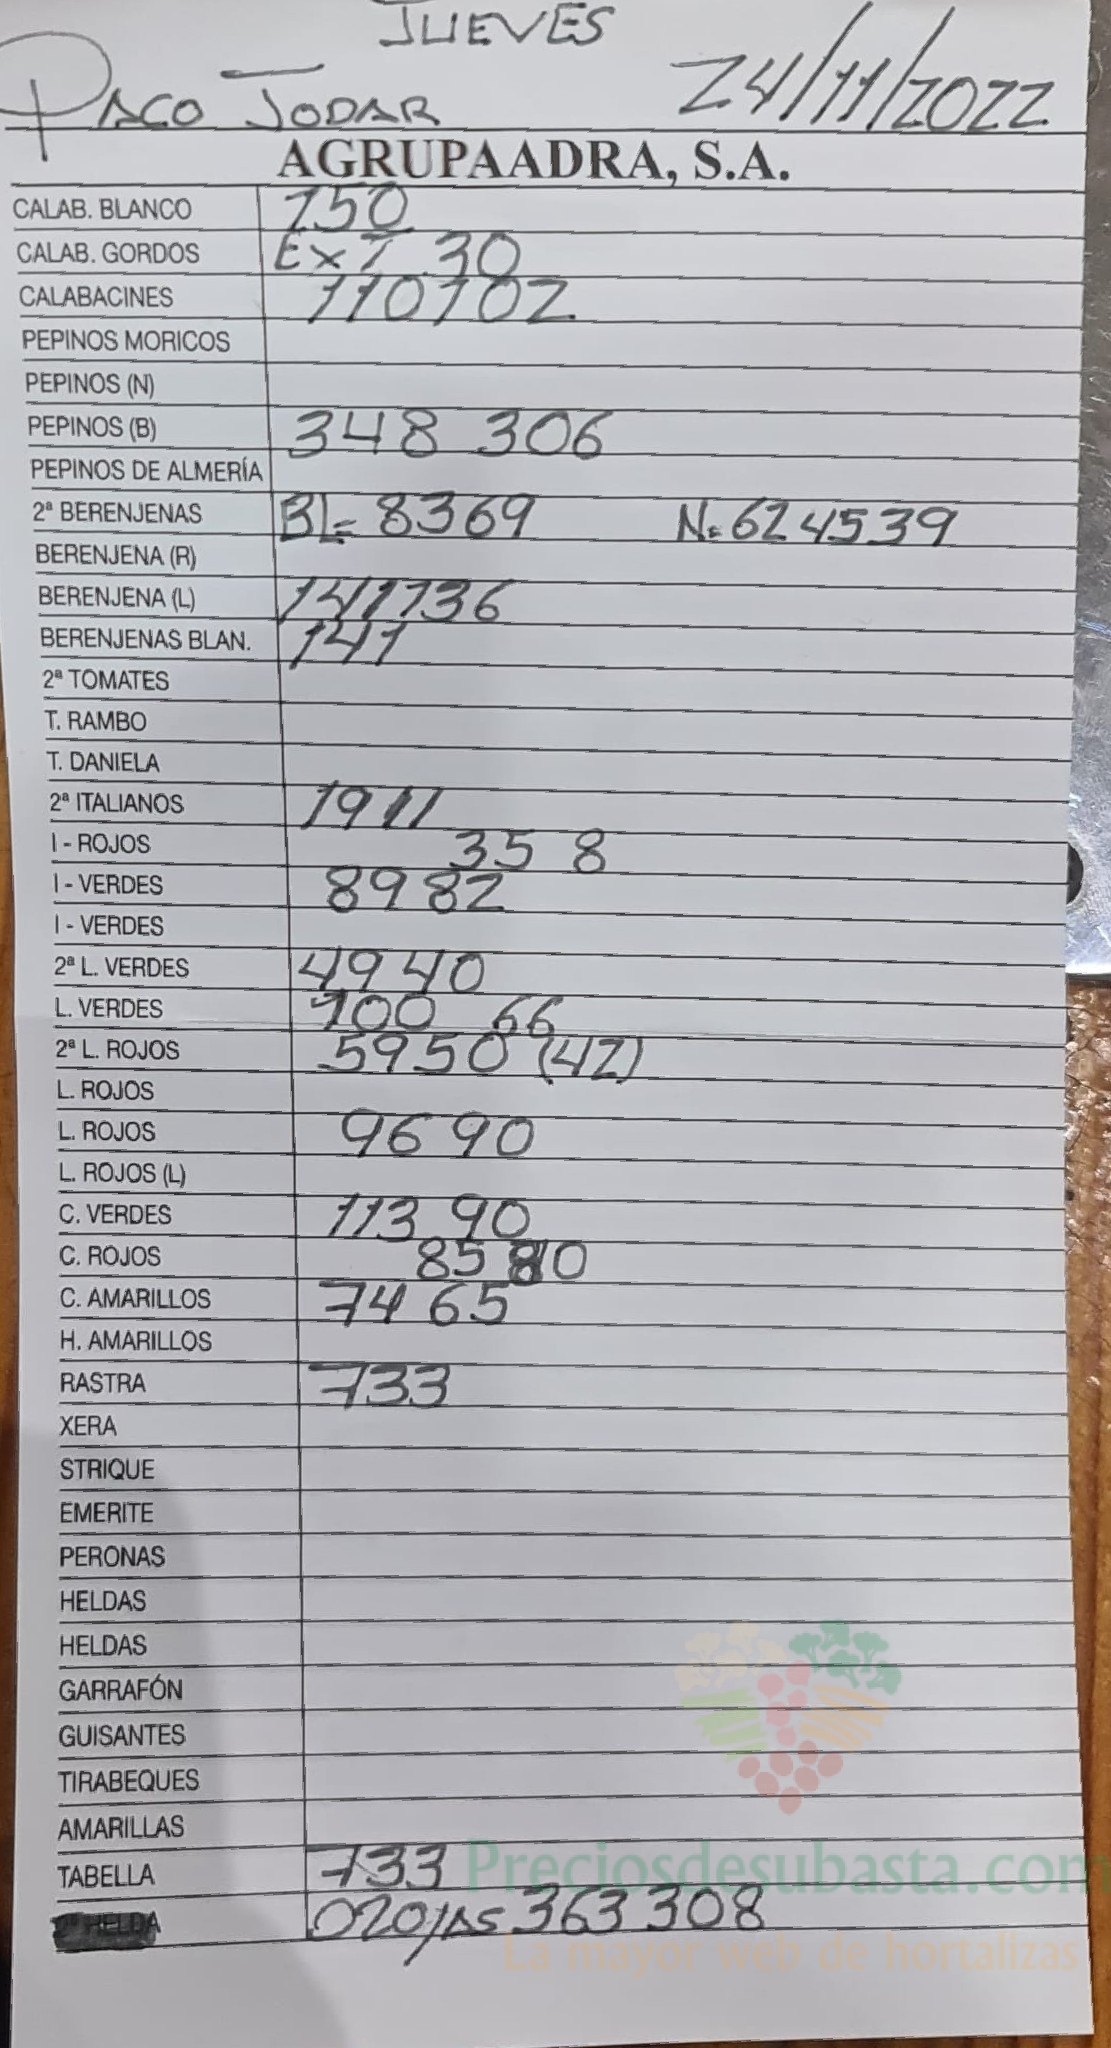 JUEVES
PACO JODAR 24/11/2022
AGRUPAADRA, S.A.
CALAB. BLANCO 150
CALAB. GORDOS EXT 30
CALABACINES 110102
PEPINOS MORICOS
PEPINOS (N)
PEPINOS (B) 348 306
PEPINOS DE ALMERÍA
2ª BERENJENAS BL= 8369 N=624539
BERENJENA (R)
BERENJENA (L) 141136
BERENJENAS BLAN. 141
2ª TOMATES
T. RAMBO
T. DANIELA
2ª ITALIANOS 19 11
I - ROJOS 35 8
I - VERDES 89 82
I - VERDES
2ª L. VERDES 49 40
L. VERDES 100 66
2ª L. ROJOS 5950 (42)
L. ROJOS
L. ROJOS 96 90
L. ROJOS (L)
C. VERDES 113 90
C. ROJOS 85
C. AMARILLOS 74 65
H. AMARILLOS
RASTRA 733
XERA
STRIQUE
EMERITE
PERONAS
HELDAS
HELDAS
GARRAFÓN
GUISANTES
TIRABEQUES
AMARILLAS
TABELLA 733
HELDA 363 308
Preciosdesubasta.com
La mayor web de hortalizas